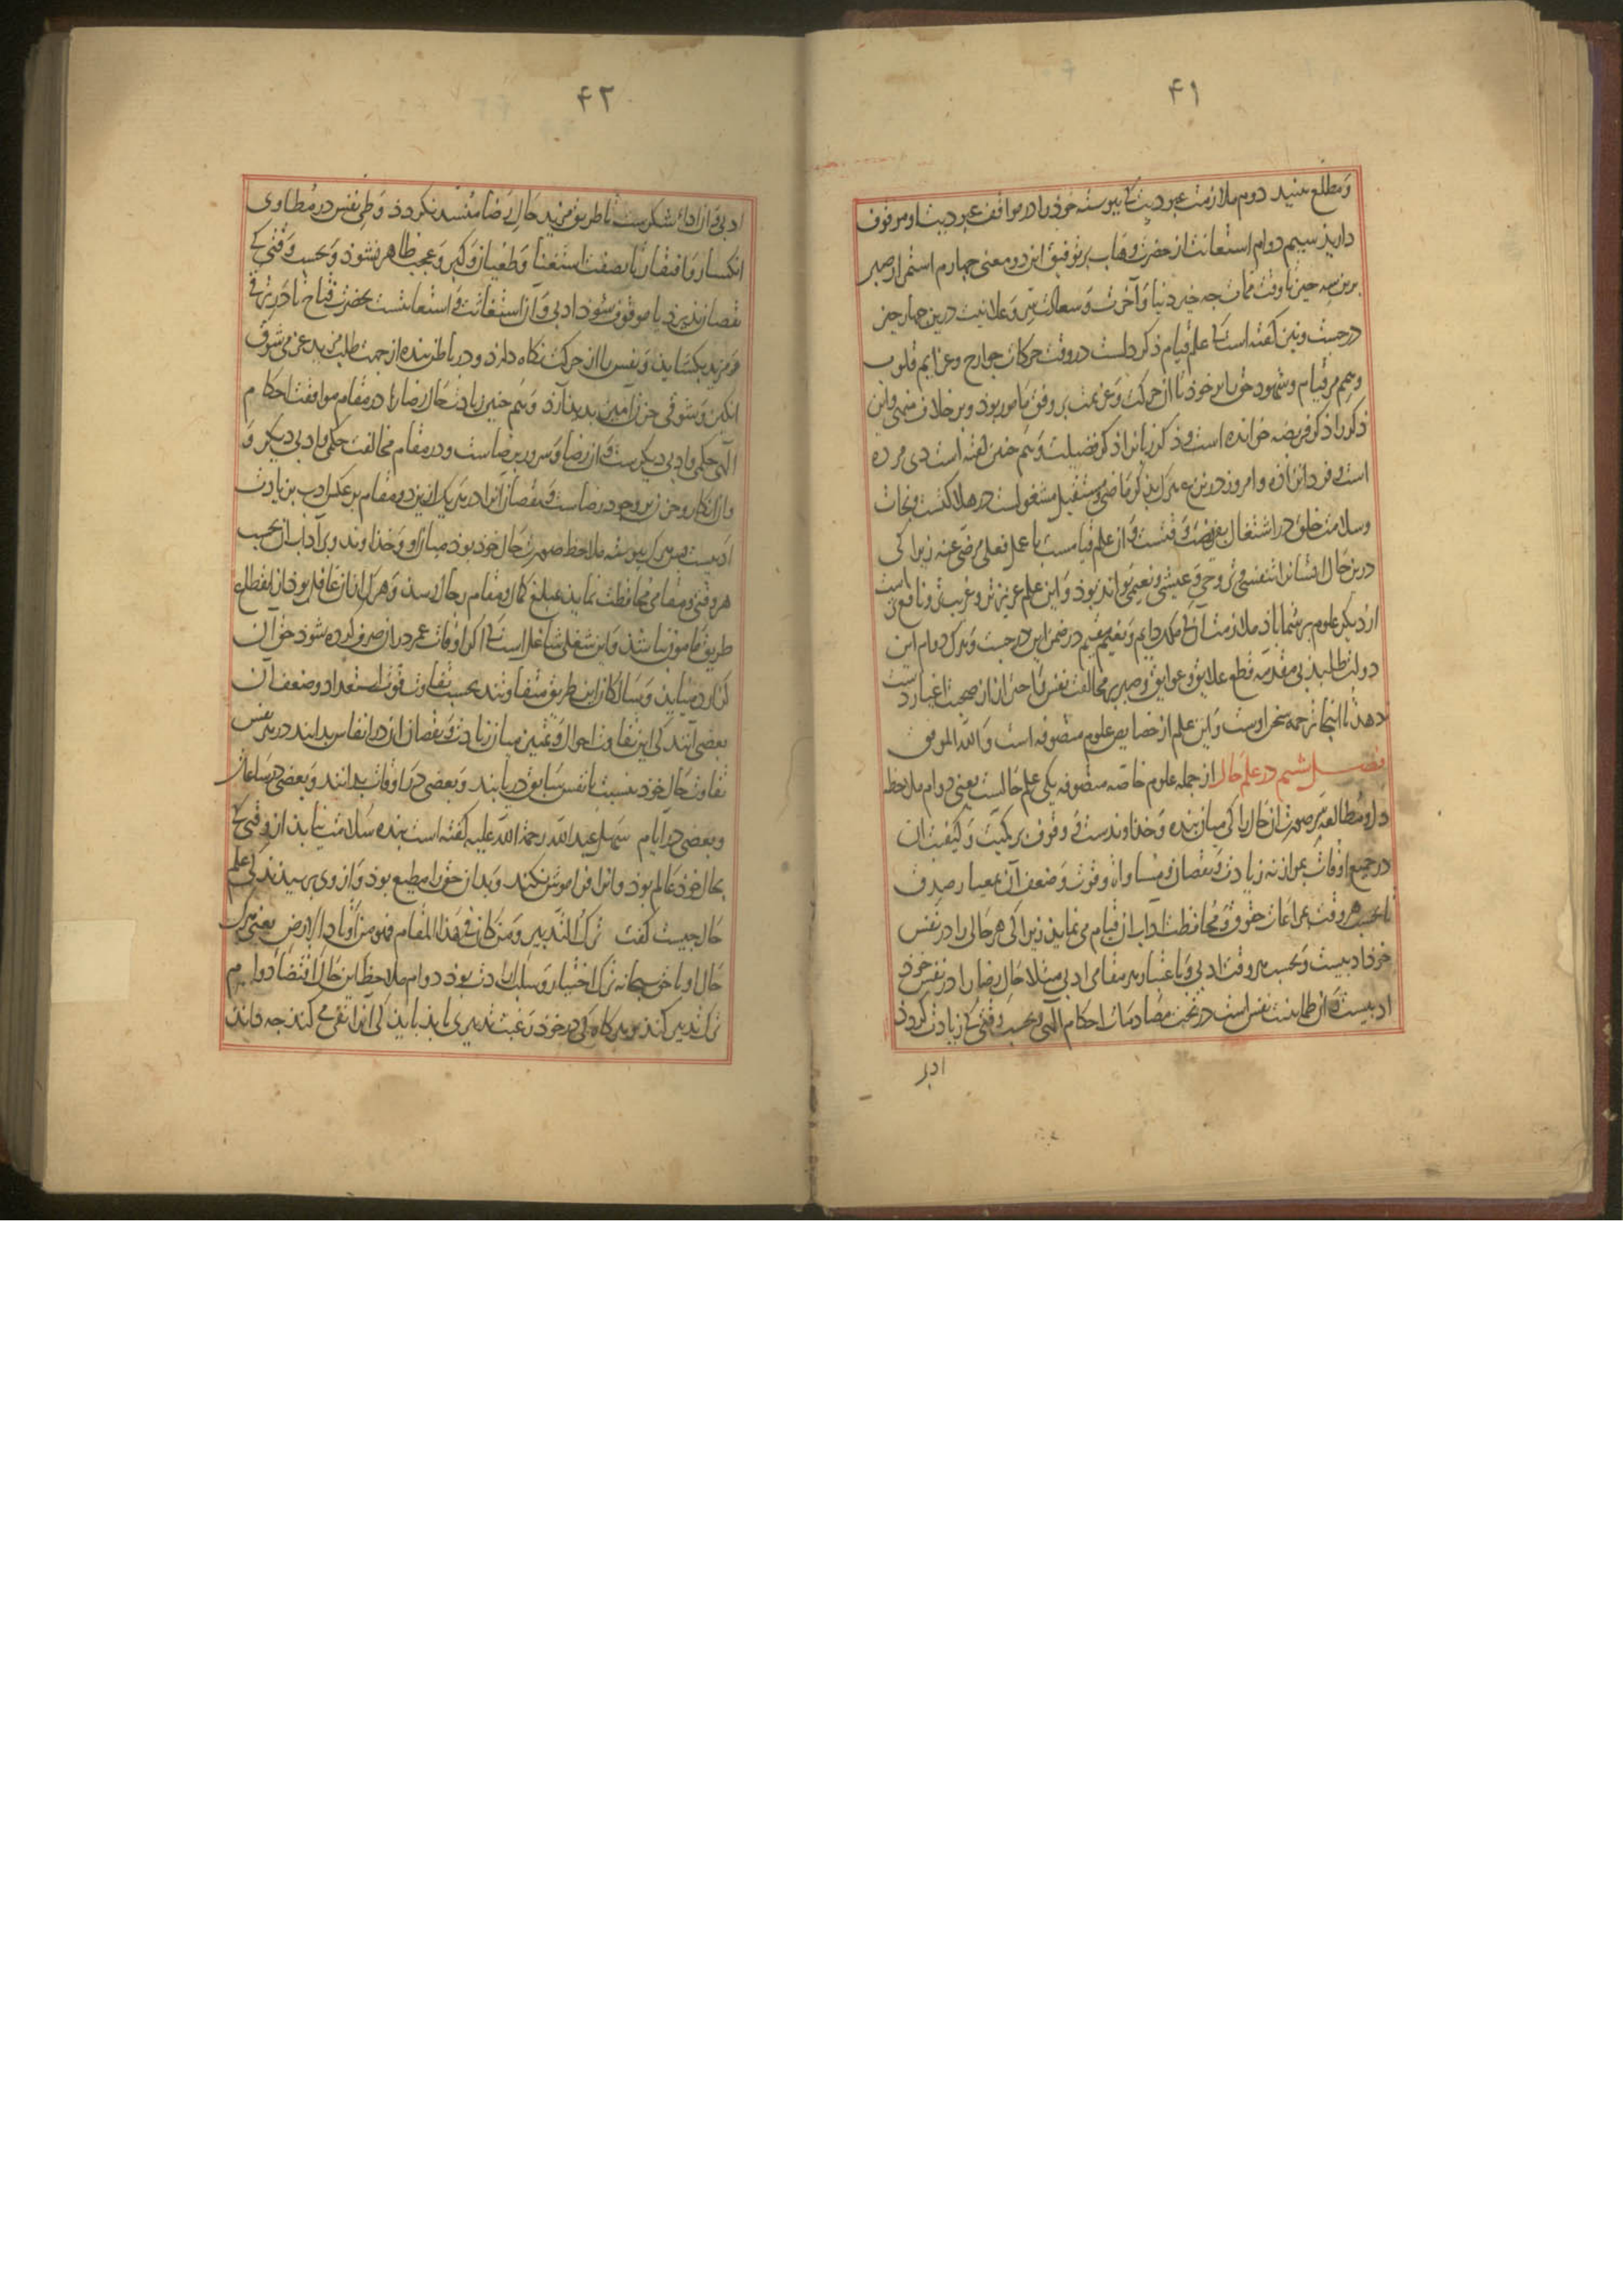 ۴۱
و مطلع بینید دوم ملازمت عبودیت کا پیوسته خوذ را در مواقف عبودیت او موقوف
داریذ سیم دوام استعانت از حضرت وهاب بر توفیق این دو معنی چهارم استمرار صبر
برین سه چیز تا وقت ممات چه خیر دنیا و آخرت و سعادت سر و علانیت درین چهار چیز
درجست و نیز کفته است که علم قیام ذکر دلست در وقت حرکات جوارح و عزایم قلوب
قیام و شهود حق را بر خوذ تا آن حرکت و عزیمت بر وفق مامور بوذ و بر خلاف منهی و این
ذکر را ذکر فریضه خوانده است و ذکر زبانرا ذکر فضیلت و هم چنین کفته است دی مرده
است و فردا نزاده و امروز در نزع هرک بذکر ماضی و مستقبل مشغولست در هلاکتست و نجات
و سلامت خلق در اشتغال بفریضه وقتست و آن علم قیامست با عمل فعلی مرضی عنه زیرا کی
درین حال انسانرا تنفسی و تروحی و عیشی و نعیمی تواند بوذ و این علم عزیزتر و غریب‌تر و نافع‌ترست
از دیکر علوم بر شما باذ ملازمت آن که ملک دایم و نعیم مقیم در ضمن این درجست و هرک دوام این
دولت طلبد بی مقدمه قطع علایق و عوایق و صبر بر مخالفت نفس و احتراز از صحبت اغیار دست
ندهد تا اینجا ترجمه سخن اوست و این علم از خصایص علوم متصوفه است و الله الموفق
فصل ششم در علم حال از جمله علوم خاصه متصوفه یکی علم حالست یعنی دوام ملاحظه
دل و مطالعه سر صورت آن حال را کی میان بنده و خذاوندست و وقوف بر کمیت و کیفیت آن
در جمیع اوقات بموازنه زیادت و نقصان و مساواة و قوت و ضعف آن بمعیار صدق
تا بحسب هر وقت بمراعات حقوق و محافظت آداب آن قیام می نماید زیرا کی هر حالی را در نفس
خوذ ادبیست و بحسب هر وقت ادبی و باعتبار هر مقامی ادبی مثلا حال رضا را در نفس خوذ
ادبیست و آن طمانینت نفس است در تحت مصادمات احکام الهی و بحسب وقتی که زیادت کردد
ادبی
۴۲
ادبی و آن اداء شکرست تا طریق مزید حال رضا منسد نکردد و طی نفس در مطاوی
انکسار و افتقار تا بصفت استغنا و طغیان و کبر و عجب ظاهر نشوذ و بحسب وقتی که
نقصان پذیرد یا موقوف شوذ ادبی و آن استغاثت و استعانتست بحضرت فتاح تا در ترقی
و مزید بکشاید و نفس را از حرکت نکاه دارد و در باطن بنده از جهت طلب مزید عزمی شوق
انکیز و شوقی حزن آمیز بدید آرد و هم چنین زیادت حال رضا را در مقام موافقت احکام
الهی حکمی و ادبی دیکرست و آن رضا و سرور برضاست و در مقام مخالفت حکمی و ادبی دیکر و
و آن انکار و حزن بر وجود رضاست و نقصان آنرا در هر یک ازین دو مقام بر عکس ادب زیادت
ادبیست و هر ک پیوسته ملاحظ صورت حال خود بوذ میان او و خذاوند و بر آداب آن بحسب
هر وقتی و مقامی محافظت نماید بمبلغ کمال و مقام رجال رسذ و هرک از آن غافل بوذ از انقطاع
طریق مامون نباشذ و این شغلی شاغل است که اکر اوقات عمر دراز صرف کرده شوذ حق آن
کزارده نیاید و سالکان این طریق متفاوتند بحسب تفاوت قوت استعداد و ضعف آن
بعضی آنند کی این تفاوت احوال و تمییز میان زیادت و نقصان آن در انفاس بدانند در هر نفس
تفاوت حال خوذ بنسبت با نفس سابق دریابند و بعضی در اوقات بدانند و بعضی در ساعات
و بعضی در ایام سهل عبد الله رحمة الله علیه کفته است بنده سلامت نیابد از وقتی که
بحال خوذ عالم بوذ و آنرا فراموش نکند و بدان حق را مطیع بوذ و از وی برسیدند کی علم
حال چیست کفت ترک التدبیر و من کان فی هذا المقام فهو من اوتاد الارض یعنی هرک
حال او با حق سبحانه ترک اختیار و سلب ارادت بوذ دوام ملاحظه این حال اقتضاء دوام
ترک تدبیر کند و هر کاه کی در خوذ رغبت تدبیری یابذ بایذ کی آنرا نفی کند چه داند